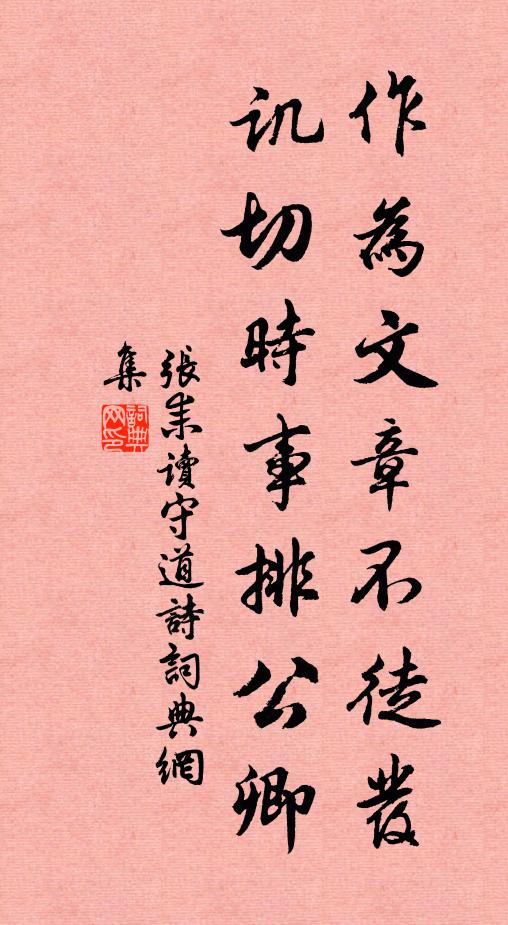 作為文章不徒發
譏切時事排公卿
張耒讀守道詩詞典網
集
詞典網印